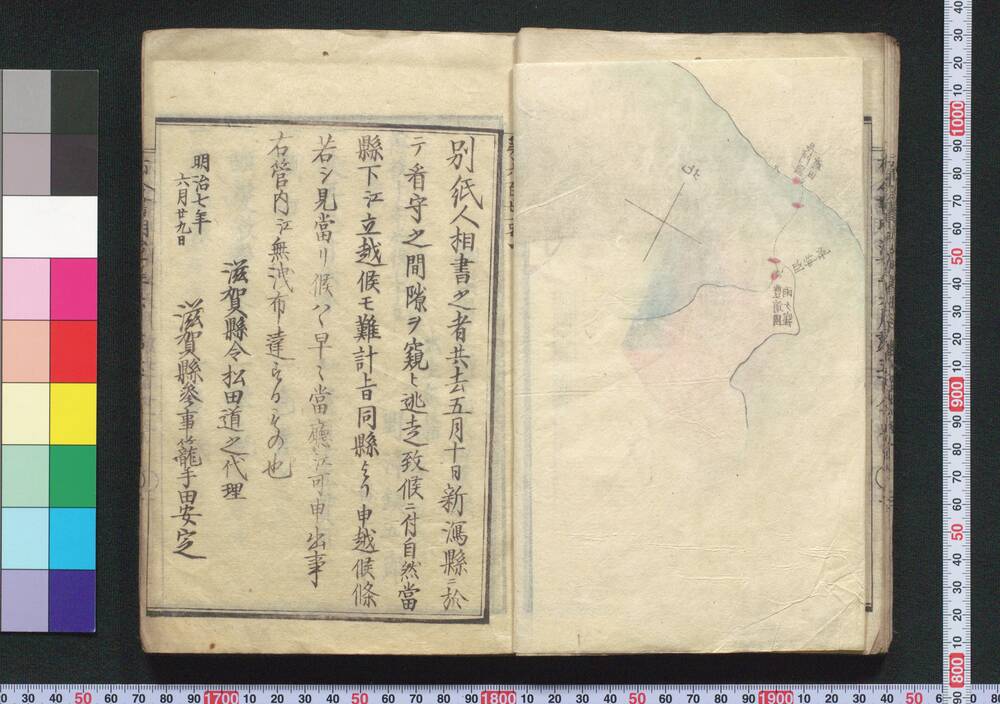 別紙人相書之者共去五月十日新潟縣ニ於
テ看守之間隙ヲ窺ヒ逃走致候ニ付自然當
縣下江立越候モ難計旨同縣ゟ申越候條
若シ見當リ候ハヽ早々當廳江可申出事
右管内江無洩布達するもの也
明治七年
六月廿九日
滋賀縣令松田道之代理
滋賀縣參事籠手田安定
北